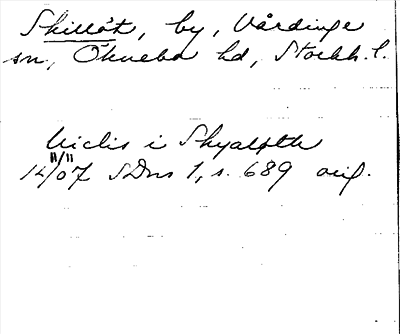 Skillöt, by, Vårdinge
sn, Öknebo hd, Stockh. l.
Niclis i Skyaløtte
11/11
14/07 SDns 1, s. 689 orig.